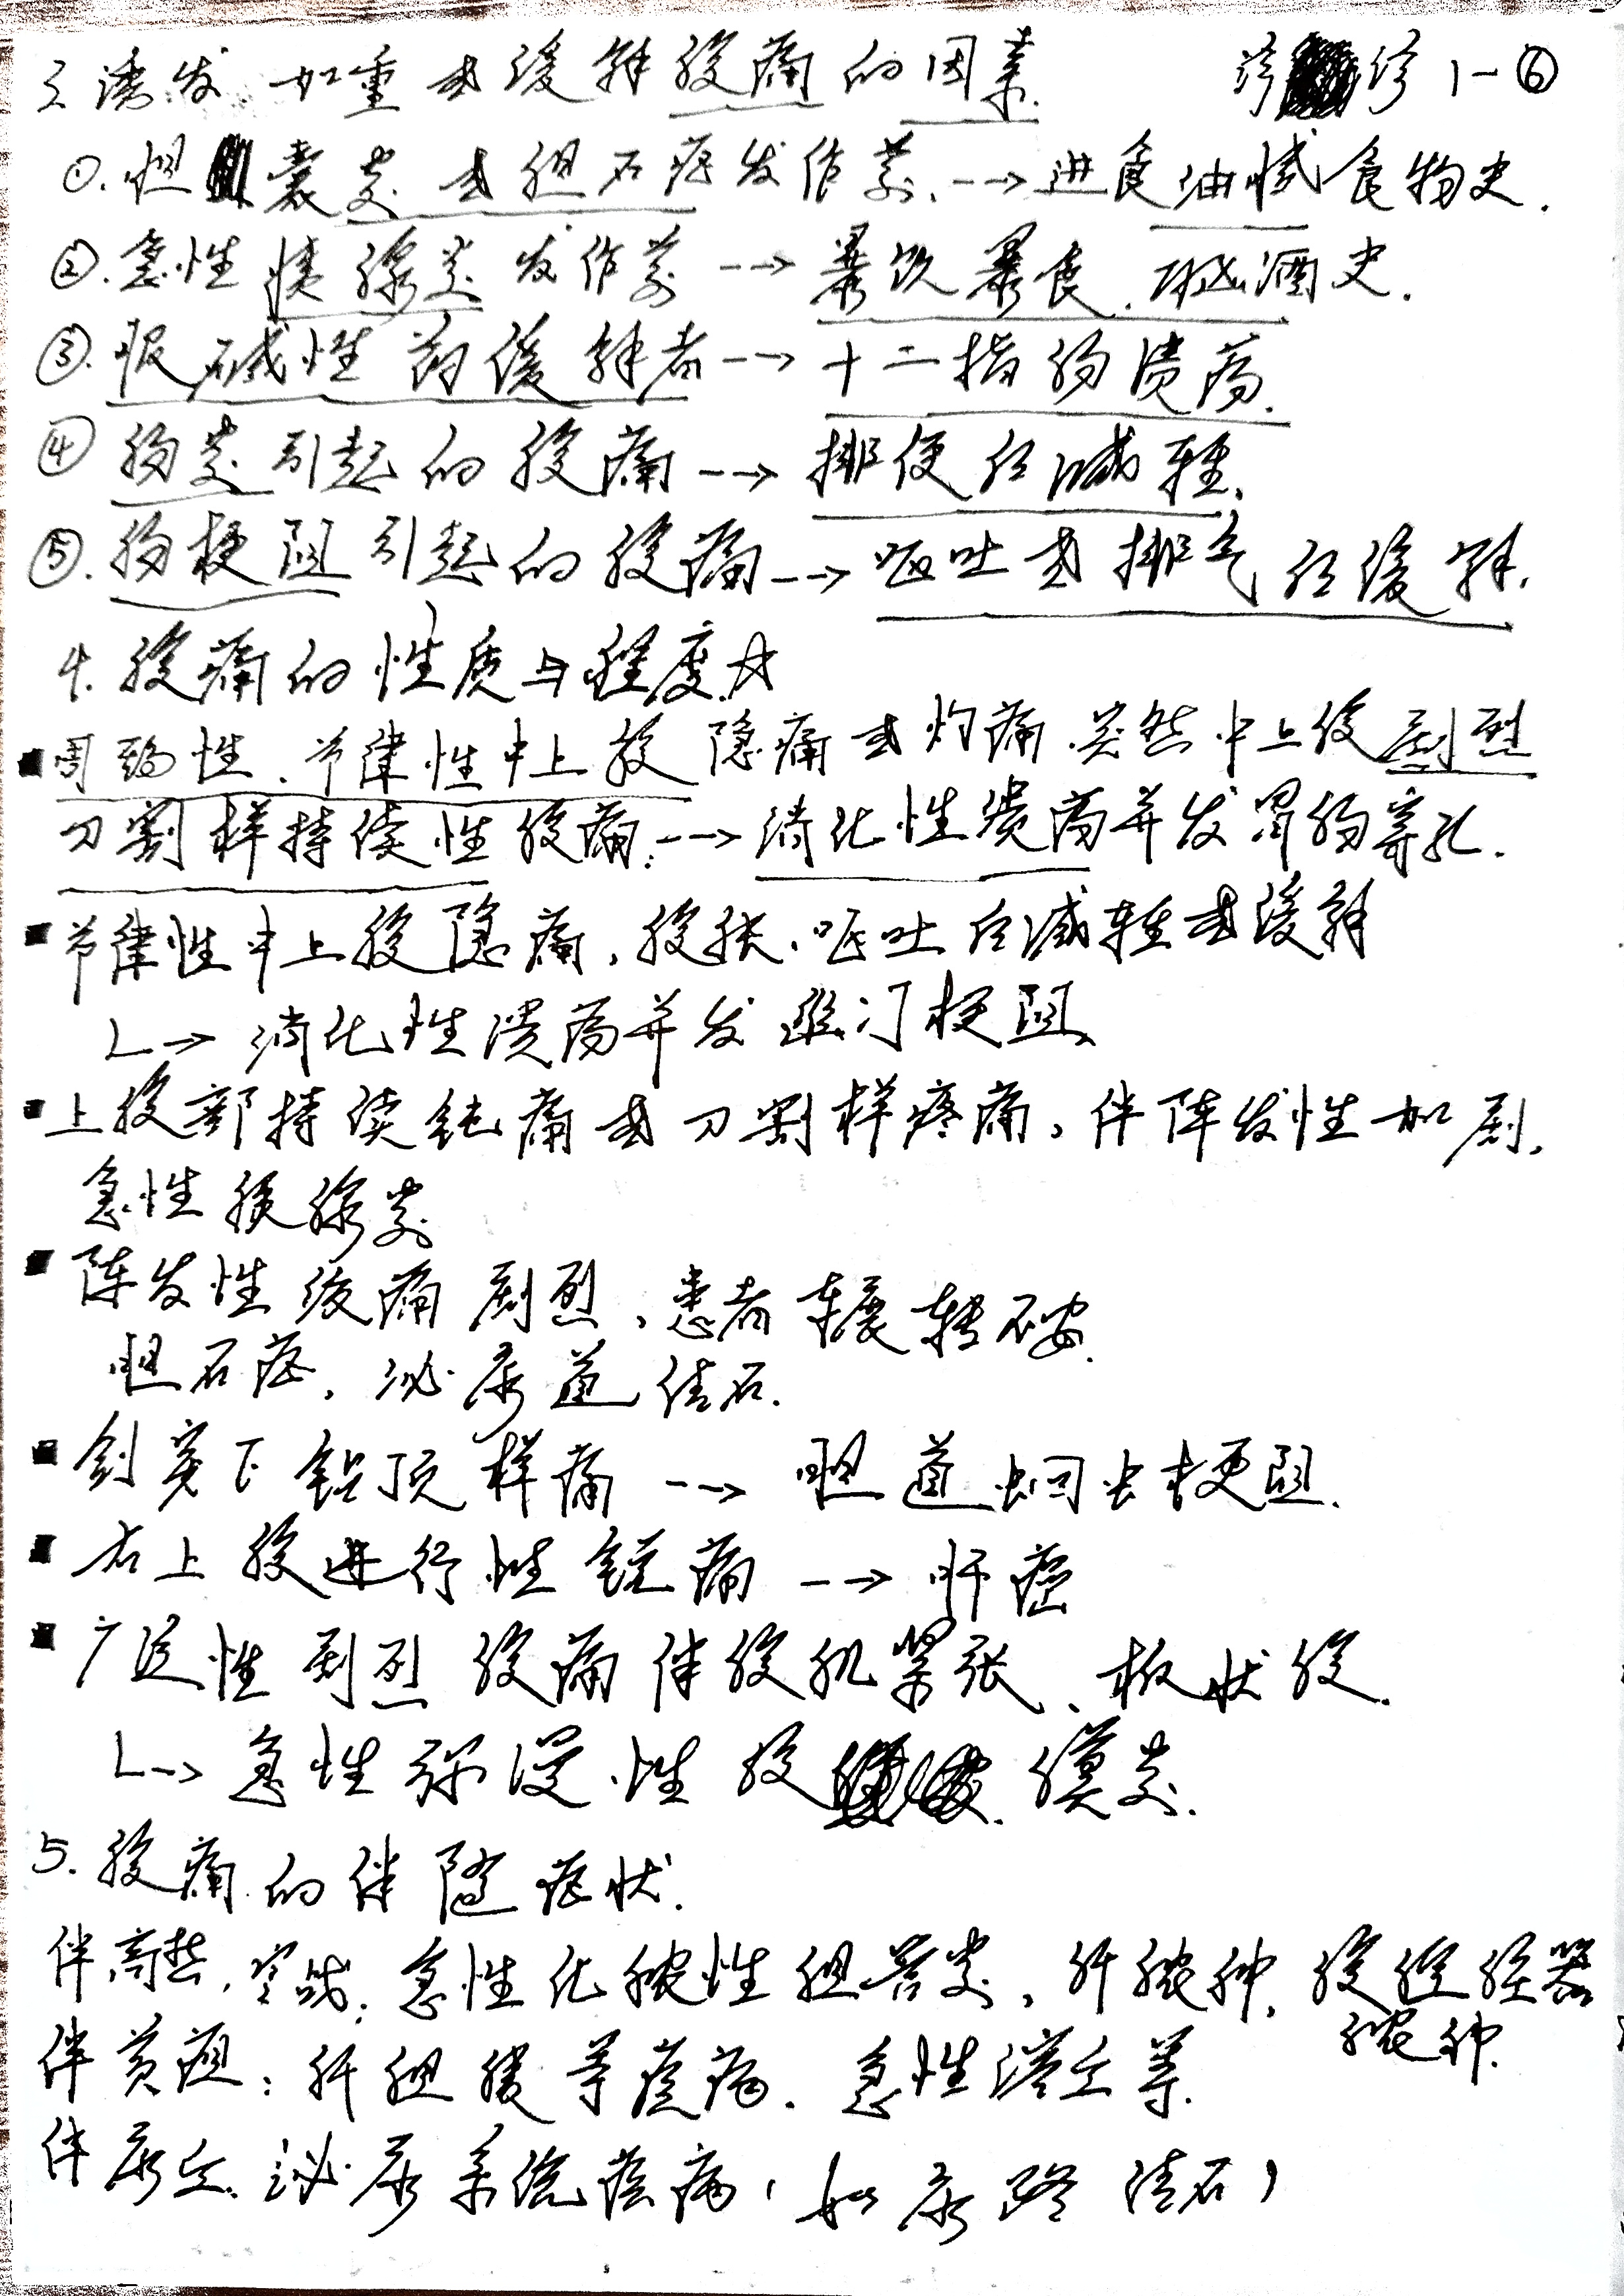 3.诱发、加重或缓解腹痛的因素. 诊诊1-⑥
①.胆囊炎或胆石症发作前.-→进食油腻食物史.
②.急性胰腺炎发作前-→暴饮暴食.酗酒史.
③.服碱性药缓解者-→十二指肠溃疡.
④肠炎引起的腹痛-→排便后减轻.
⑤.肠梗阻引起的腹痛-→呕吐或排气后缓解.
4.腹痛的性质与程度.☆
▪周期性、节律性中上腹隐痛或灼痛.突然中上腹剧烈
刀割样持续性腹痛.-→消化性溃疡并发胃肠穿孔.
▪节律性中上腹隐痛,腹胀、呕吐后减轻或缓解
L→消化性溃疡并发幽门梗阻.
▪上腹部持续钝痛或刀割样疼痛,伴阵发性加剧,
急性胰腺炎
▪阵发性绞痛剧烈,患者辗转不安.
胆石症,泌尿道结石.
▪剑突下钻顶样痛-→胆道蛔虫梗阻.
▪右上腹进行性锐痛-→肝癌
▪广泛性剧烈腹痛伴腹肌紧张、板状腹.
L-→急性弥漫性腹膜炎.
5.腹痛的伴随症状.
伴高热,寒战:急性化脓性胆管炎,肝脓肿,腹腔脏器
脓肿.
伴黄疸:肝胆胰等疾病.急性溶血等.
伴尿血.泌尿系统疾病,(如尿路结石)